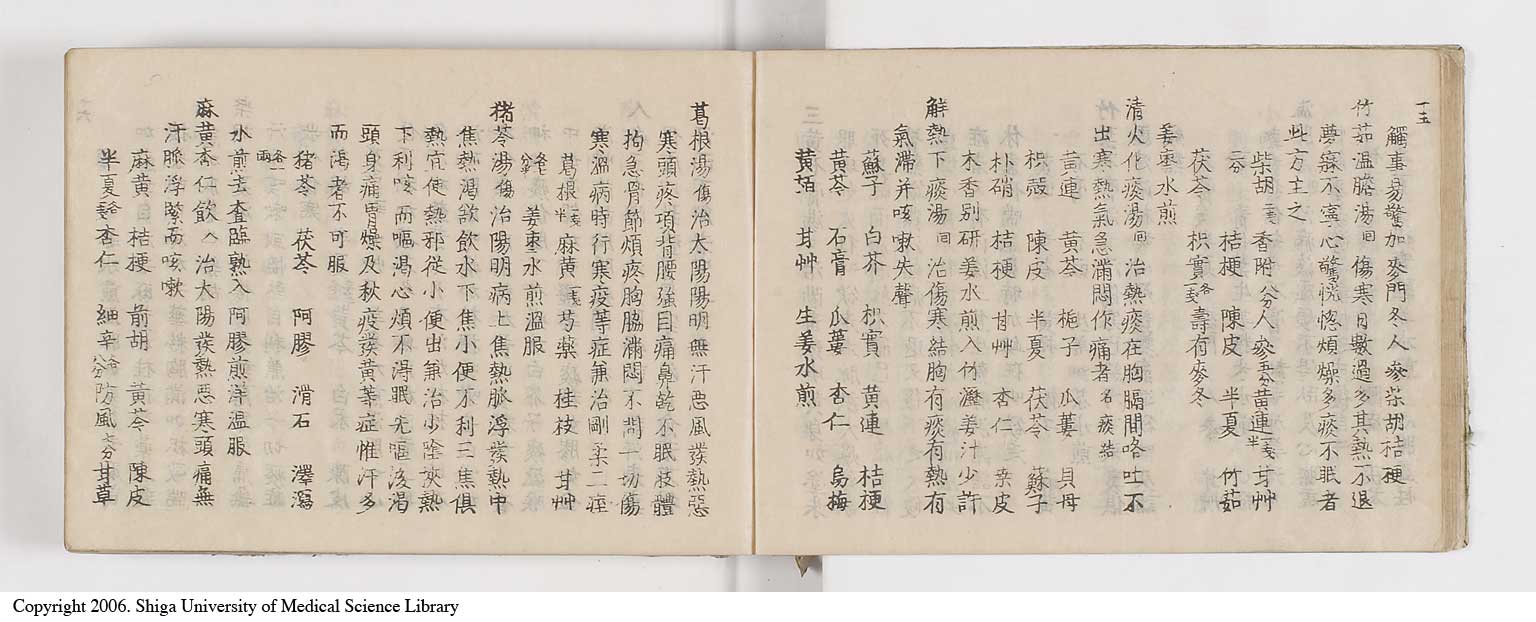 十五
觸事易驚加麥門冬人參柴胡桔梗
竹茹溫膽湯回 傷寒日數過多其熱不退
夢寐不寧心驚恍惚煩燥多痰不眠者
此方主之
柴胡二戔 香附八分 人參五分 黃連一戔半 甘艸
二分 桔梗 陳皮 半夏 竹茹
茯苓 枳實各一戔 壽有麥冬
姜棗水煎
清火化痰湯回 治熱痰在胸膈間咯吐不
出寒熱氣急滿悶作痛者名痰結
黃連 黃芩 梔子 瓜蔞 貝母
枳殼 陳皮 半夏 茯苓 蘇子
朴硝 桔梗 甘艸 杏仁 桑皮
木香別研 姜水煎入竹瀝姜汁少許
解熱下痰湯回 治傷寒結胸有痰有熱有
氣滯并咳嗽失聲
蘇子 白芥 枳實 黃連 桔梗
黃芩 石膏 瓜蔞 杏仁 烏梅
黃栢 甘艸 生姜水煎
葛根湯傷 治太陽陽明無汗惡風發熱惡
寒頭疼項背腰強目痛鼻乾不眠肢體
拘急骨節煩疼胸脇滿悶不問一切傷
寒溫病時行寒疫等症兼治剛柔二痙
葛根半戔 麻黃一戔 芍藥 桂枝 甘艸
各七分 姜棗水煎溫服
猪苓湯傷 治陽明病上焦熱脈浮發熱中
焦熱渴欲飲水下焦小便不利三焦俱
熱宜使熱邪從小便出兼治少陰挾熱
下利咳而嘔渴心煩不得眠先嘔後渴
頭身痛胃燥及秋疫發黃等症惟汗多
而渴者不可服
猪苓 茯苓 阿膠 滑石 澤瀉
各一兩 水煎去査臨熟入阿膠煎洋溫服
麻黃杏仁飲入 治太陽發熱惡寒頭痛無
汗脈浮緊而咳嗽
麻黃 桔梗 前胡 黃芩 陳皮
半夏各一戔 杏仁 細辛各八分 防風七分 甘草
十六
Copyright 2006. Shiga University of Medical Science Library